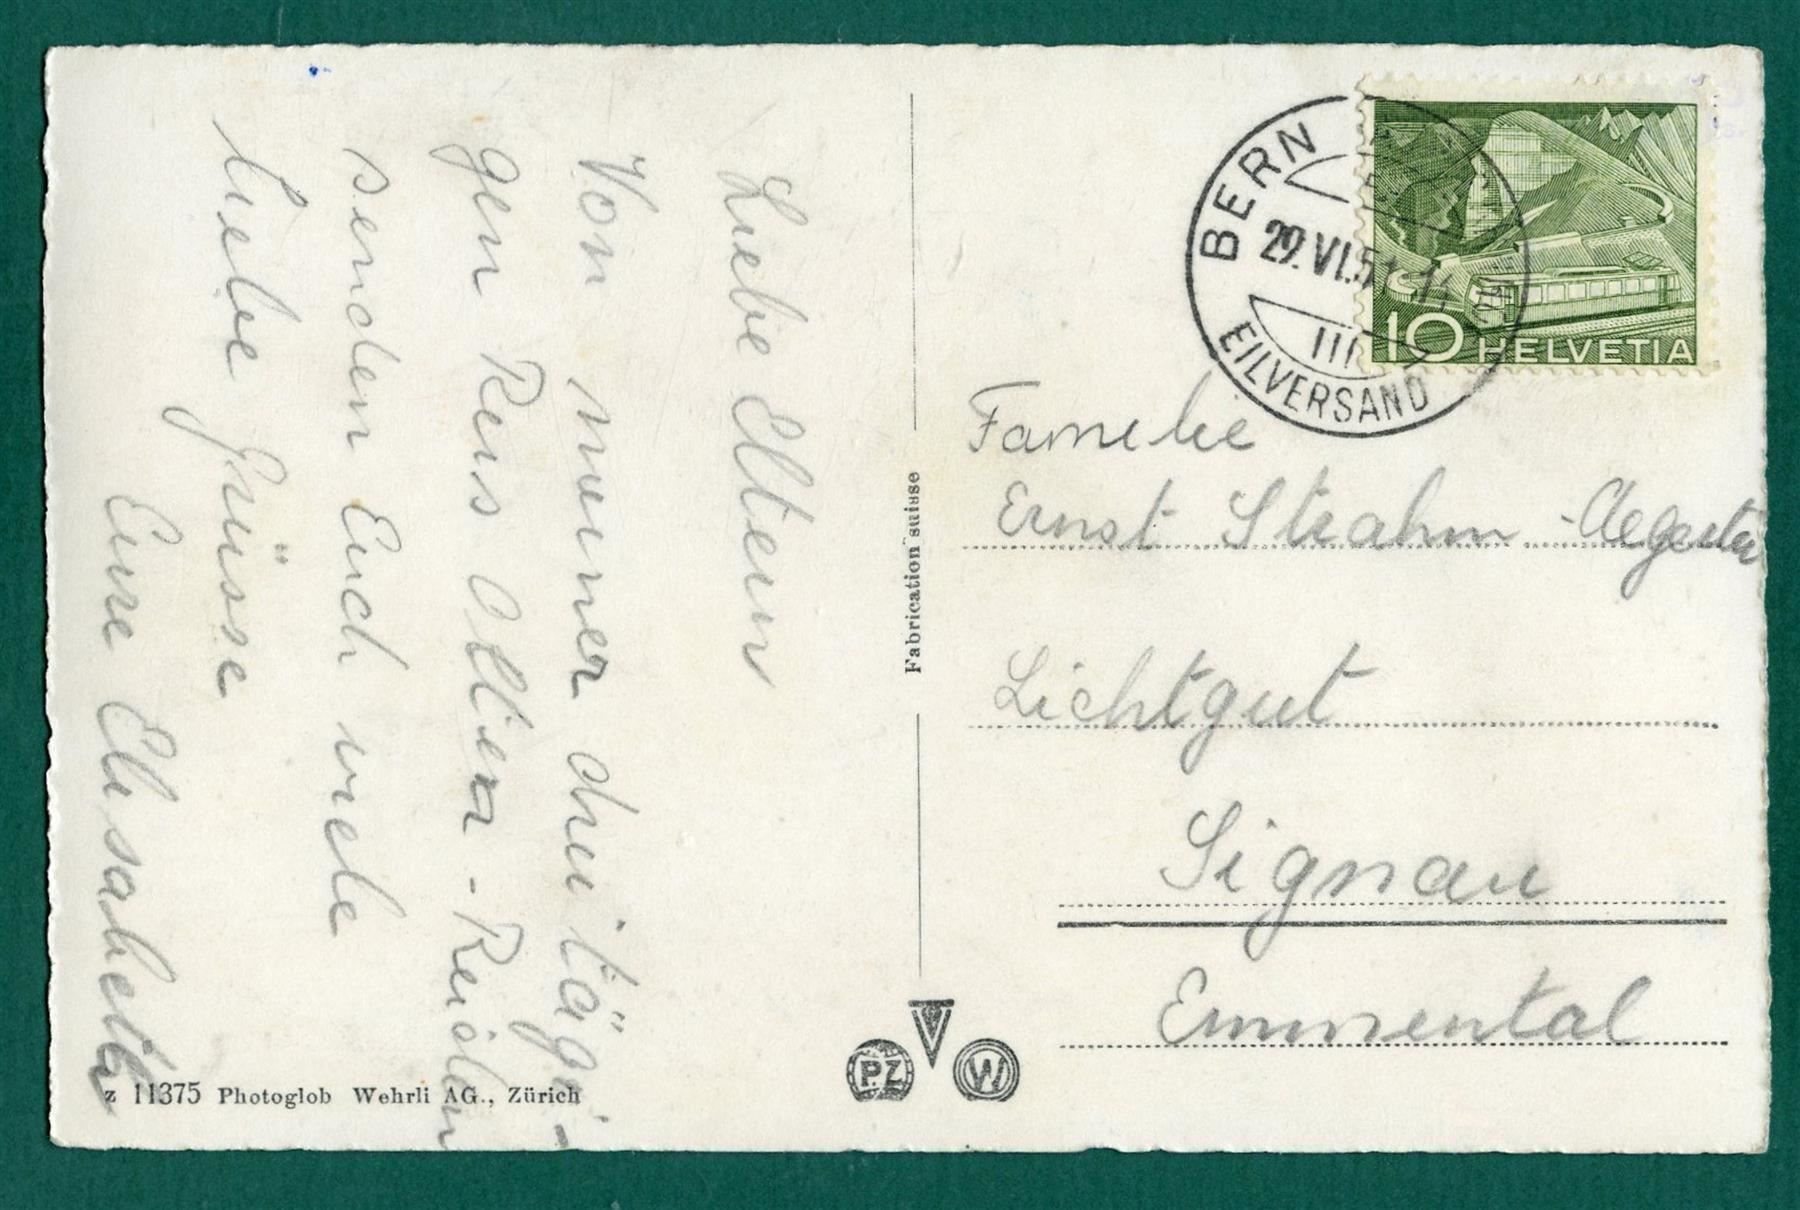 Liebe Eltern
Von meiner dreitägi-
gen Reis Olten - Reiden
senden Euch viele
liebe Grüsse
Eure Elisabeth
z 11375 Photoglob Wehrli AG., Zürich
Fabrication suisse
PZ
W
BERN
29.VI.51.
EILVERSAND
10 HELVETIA
Familie
Ernst Strahm - Aegerter
Lichtgut
Signau
Emmental